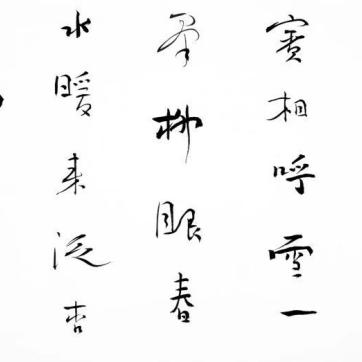 賓相呼雪一
耳柳眼春
水暖来泛杏